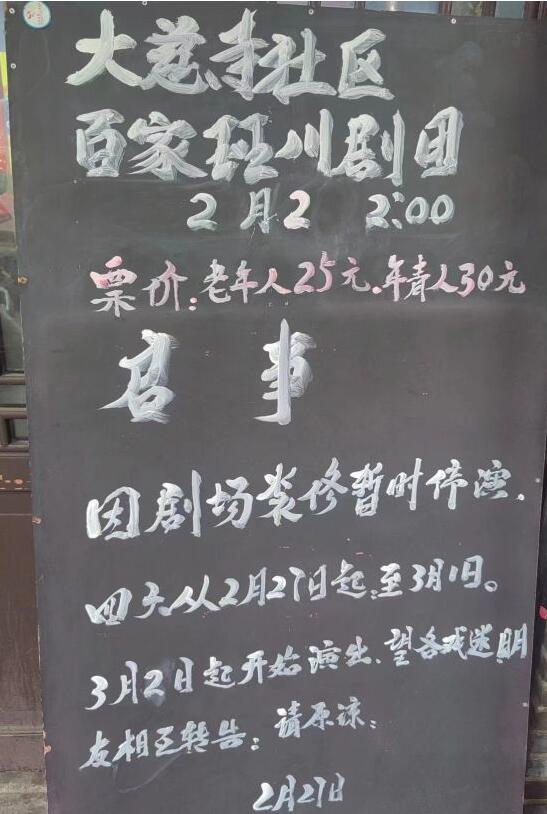 大慈寺社区
百家班川剧团
2月2 2:00
票价:老年人25元.年青人30元
启事
因剧场装修暂时停演.
四天从2月27日起.至3月1日。
3月2日起开始演出、望各戏迷朋
友相互转告:请原谅:
2月27日